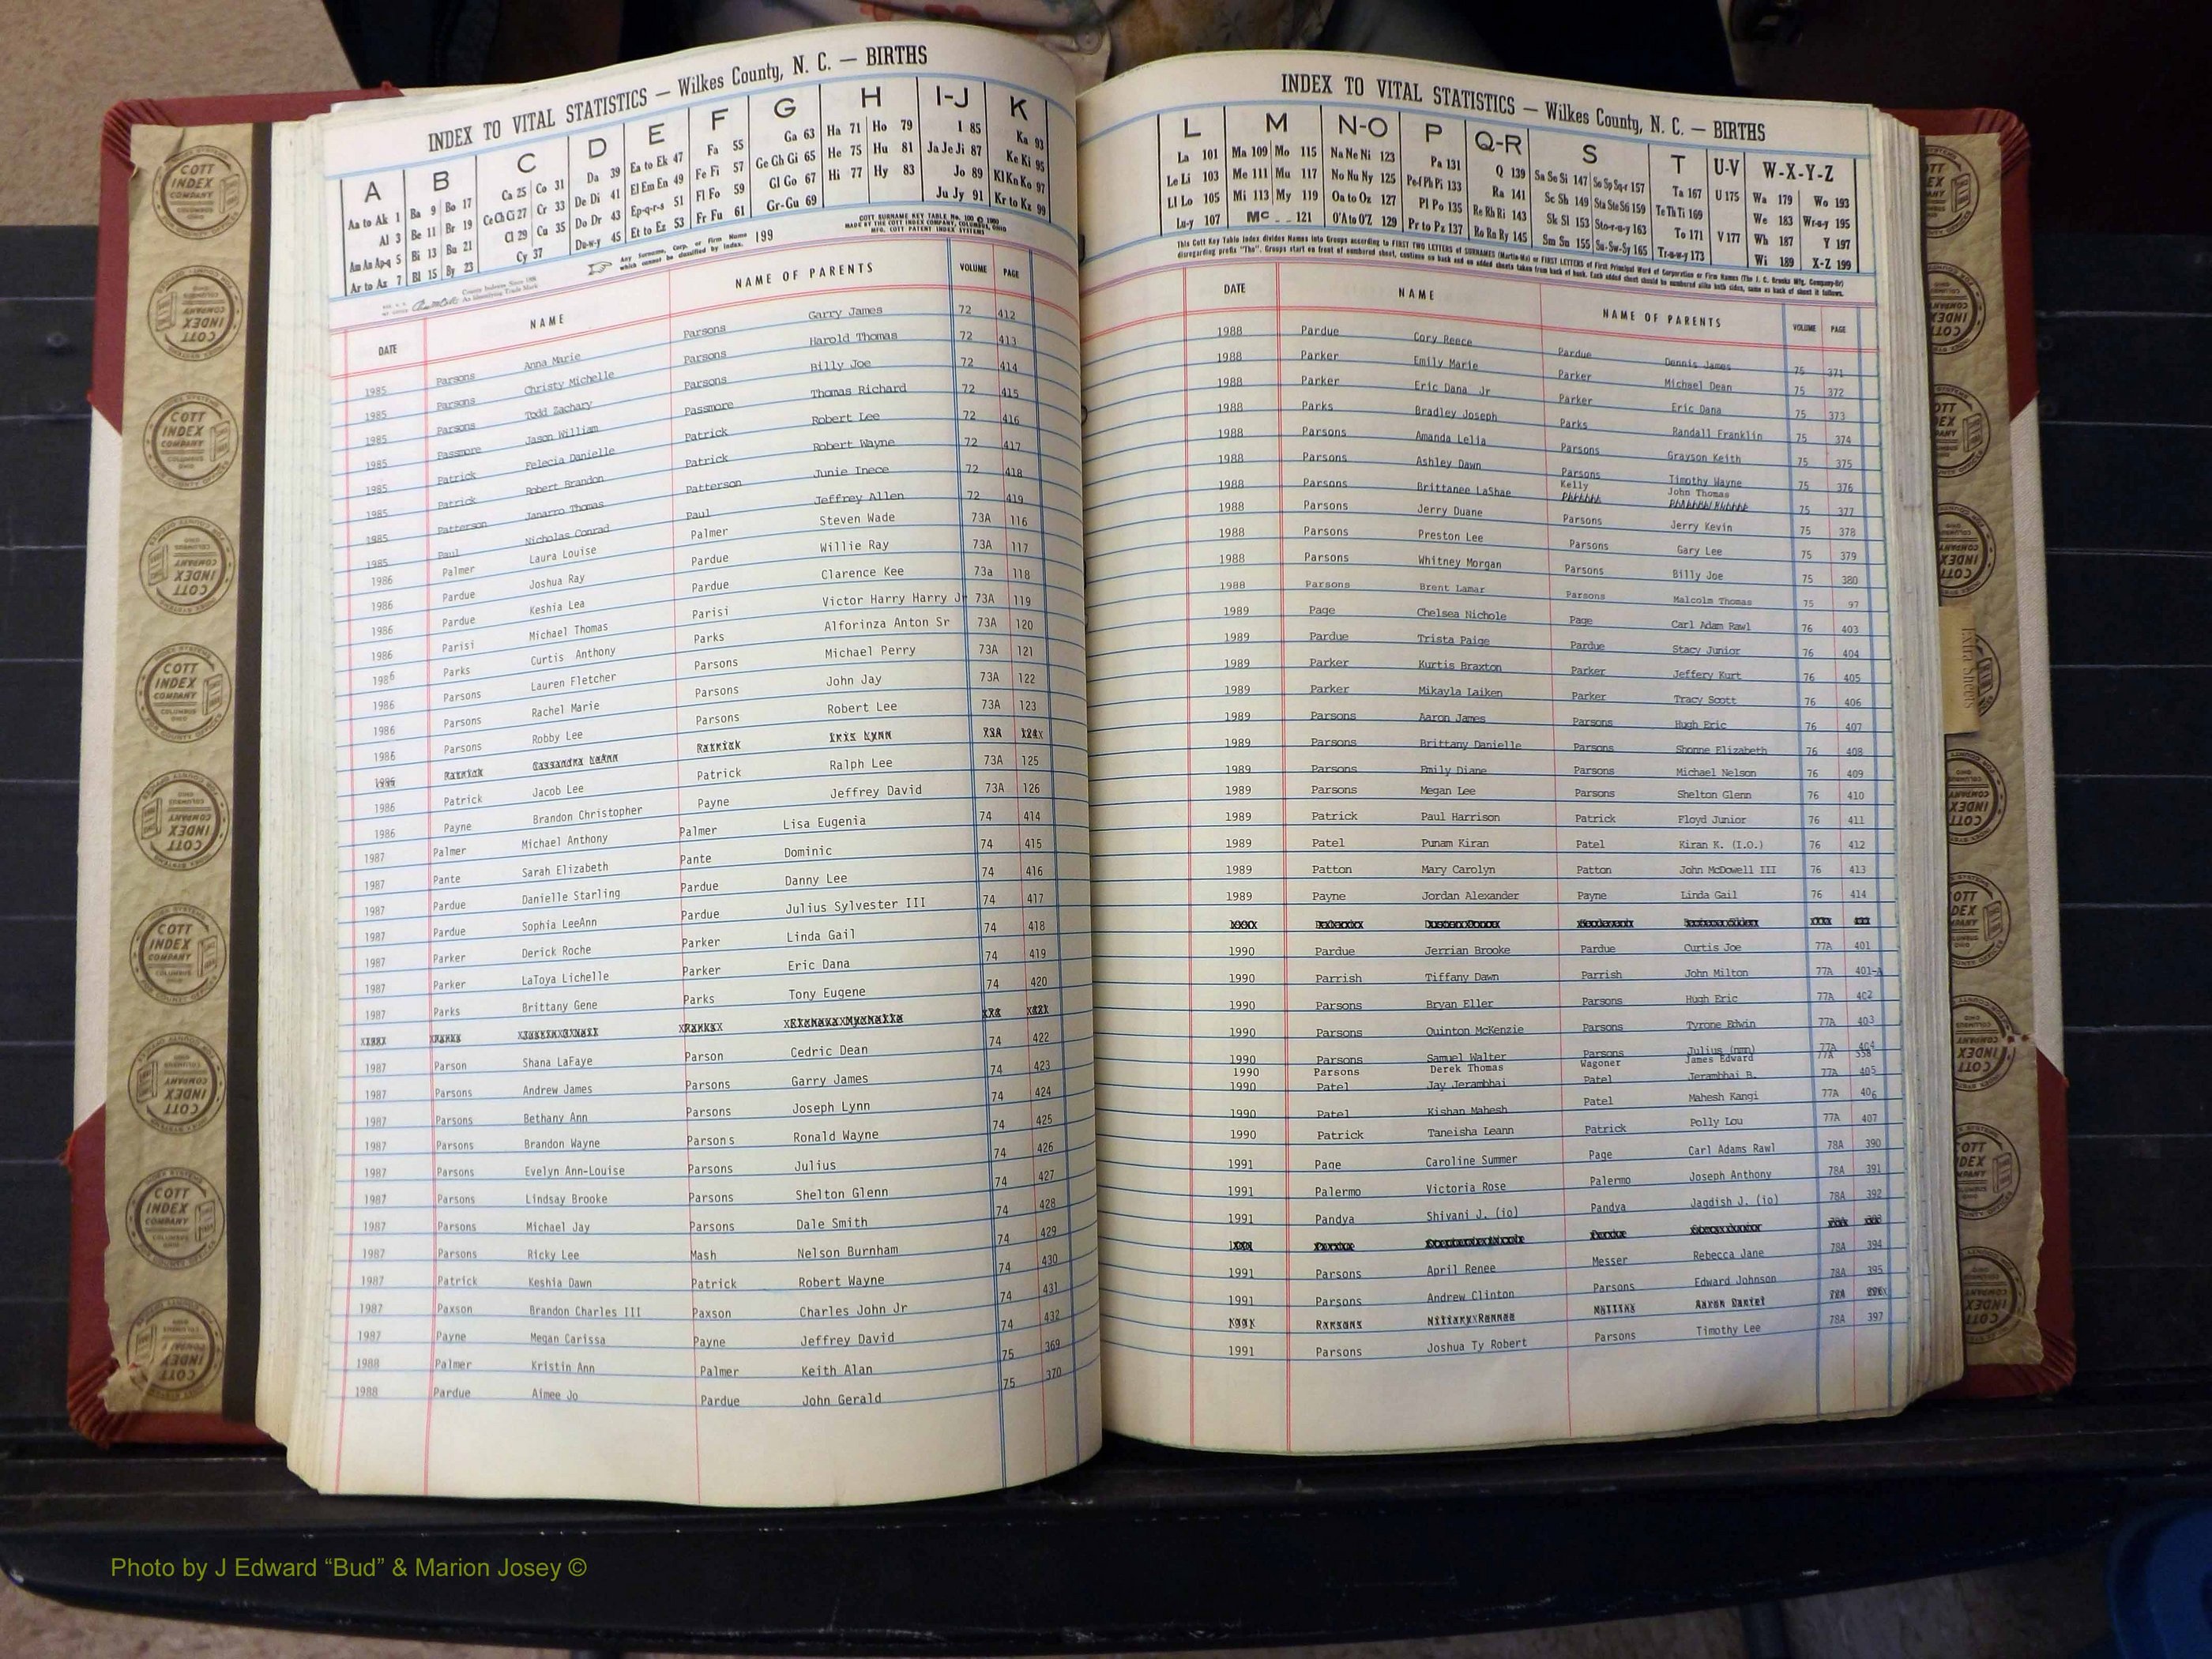 INDEX TO VITAL STATISTICS — Wilkes County, N. C. — BIRTHS
A B C D E F G H I-J K
Aa to Ak 1 Ba 9 Bo 17 Ca 25 Co 31 Da 39 Ea to Ek 47 Fa 55 Ga 63 Ha 71 Ho 79 I 85 Ka 93
Al 3 Be 11 Br 19 Ce Ch Ci 27 Cr 33 De Di 41 El Em En 49 Fe Fi 57 Ge Gh Gi 65 He 75 Hu 81 Ja Je Ji 87 Ke Ki 95
Am An Ap-q 5 Bi 13 Bu 21 Cl 29 Cu 35 Do Dr 43 Ep-q-r-s 51 Fl Fo 59 Gl Go 67 Hi 77 Hy 83 Jo 89 Kl Kn Ko 97
Ar to Az 7 Bl 15 By 23 Cy 37 Du-w-y 45 Et to Ez 53 Fr Fu 61 Gr-Gu 69 Ju Jy 91 Kr to Kz 99
Any Surname, Corp. or Firm Name which cannot be classified by Index. 199
DATE NAME NAME OF PARENTS VOLUME PAGE
1985 Parsons Anna Marie Parsons Garry James 72 412
1985 Parsons Christy Michelle Parsons Harold Thomas 72 413
1985 Parsons Todd Zachary Parsons Billy Joe 72 414
1985 Passmore Jason William Passmore Thomas Richard 72 415
1985 Patrick Felecia Danielle Patrick Robert Lee 72 416
1985 Patrick Robert Brandon Patrick Robert Wayne 72 417
1985 Patterson Janarro Thomas Patterson Junie Inece 72 418
1985 Paul Nicholas Conrad Paul Jeffrey Allen 72 419
1986 Palmer Laura Louise Palmer Steven Wade 73A 116
1986 Pardue Joshua Ray Pardue Willie Ray 73A 117
1986 Pardue Keshia Lea Pardue Clarence Kee 73a 118
1986 Parisi Michael Thomas Parisi Victor Harry Harry J 73A 119
1986 Parks Curtis Anthony Parks Alforinza Anton Sr 73A 120
1986 Parsons Lauren Fletcher Parsons Michael Perry 73A 121
1986 Parsons Rachel Marie Parsons John Jay 73A 122
1986 Parsons Robby Lee Parsons Robert Lee 73A 123
1986 Patrick Jacob Lee Patrick Ralph Lee 73A 125
1986 Payne Brandon Christopher Payne Jeffrey David 73A 126
1987 Palmer Michael Anthony Palmer Lisa Eugenia 74 414
1987 Pante Sarah Elizabeth Pante Dominic 74 415
1987 Pardue Danielle Starling Pardue Danny Lee 74 416
1987 Pardue Sophia LeeAnn Pardue Julius Sylvester III 74 417
1987 Parker Derick Roche Parker Linda Gail 74 418
1987 Parker LaToya Lichelle Parker Eric Dana 74 419
1987 Parks Brittany Gene Parks Tony Eugene 74 420
1987 Parson Shana LaFaye Parson Cedric Dean 74 422
1987 Parsons Andrew James Parsons Garry James 74 423
1987 Parsons Bethany Ann Parsons Joseph Lynn 74 424
1987 Parsons Brandon Wayne Parsons Ronald Wayne 74 425
1987 Parsons Evelyn Ann-Louise Parsons Julius 74 426
1987 Parsons Lindsay Brooke Parsons Shelton Glenn 74 427
1987 Parsons Michael Jay Parsons Dale Smith 74 428
1987 Parsons Ricky Lee Mash Nelson Burnham 74 429
1987 Patrick Keshia Dawn Patrick Robert Wayne 74 430
1987 Paxson Brandon Charles III Paxson Charles John Jr 74 431
1987 Payne Megan Carissa Payne Jeffrey David 74 432
1988 Palmer Kristin Ann Palmer Keith Alan 75 369
1988 Pardue Aimee Jo Pardue John Gerald 75 370
INDEX TO VITAL STATISTICS — Wilkes County, N. C. — BIRTHS
L M N-O P Q-R S T U-V W-X-Y-Z
La 101 Ma 109 Mo 115 Na Ne Ni 123 Pa 131 Q 139 Sa Se Si 147 So Sp Sq-r 157 Ta 167 U 175 Wa 179 Wo 193
Le Li 103 Me 111 Mu 117 No Nu Ny 125 Pe-f Ph Pi 133 Ra 141 Sc Sh 149 Sta Ste Sti 159 Te Th Ti 169 We 183 Wr-u-y 195
Ll Lo 105 Mi 113 My 119 Oa to Oz 127 Pl Po 135 Re Rh Ri 143 Sk Sl 153 Sto-r-u-y 163 To 171 V 177 Wh 187 Y 197
Lu-y 107 Mc 121 O'A to O'Z 129 Pr to Pz 137 Ro Ru Ry 145 Sm Sn 155 Su-Sw-Sy 165 Tr-u-w-y 173 Wi 189 X-Z 199
DATE NAME NAME OF PARENTS VOLUME PAGE
1988 Pardue Cory Reece Pardue Dennis James 75 371
1988 Parker Emily Marie Parker Michael Dean 75 372
1988 Parker Eric Dana Jr Parker Eric Dana 75 373
1988 Parks Bradley Joseph Parks Randall Franklin 75 374
1988 Parsons Amanda Lelia Parsons Grayson Keith 75 375
1988 Parsons Ashley Dawn Parsons Timothy Wayne 75 376
1988 Parsons Brittanee LaShae Kelly John Thomas 75 377
1988 Parsons Jerry Duane Parsons Jerry Kevin 75 378
1988 Parsons Preston Lee Parsons Gary Lee 75 379
1988 Parsons Whitney Morgan Parsons Billy Joe 75 380
1988 Parsons Brent Lamar Parsons Malcolm Thomas 75 97
1989 Page Chelsea Nichole Page Carl Adam Rawl 76 403
1989 Pardue Trista Paige Pardue Stacy Junior 76 404
1989 Parker Kurtis Braxton Parker Jeffery Kurt 76 405
1989 Parker Mikayla Laiken Parker Tracy Scott 76 406
1989 Parsons Aaron James Parsons Hugh Eric 76 407
1989 Parsons Brittany Danielle Parsons Shonne Elizabeth 76 408
1989 Parsons Emily Diane Parsons Michael Nelson 76 409
1989 Parsons Megan Lee Parsons Shelton Glenn 76 410
1989 Patrick Paul Harrison Patrick Floyd Junior 76 411
1989 Patel Punam Kiran Patel Kiran K. (I.O.) 76 412
1989 Patton Mary Carolyn Patton John McDowell III 76 413
1989 Payne Jordan Alexander Payne Linda Gail 76 414
1990 Pardue Jerrian Brooke Pardue Curtis Joe 77A 401
1990 Parrish Tiffany Dawn Parrish John Milton 77A 401-A
1990 Parsons Bryan Eller Parsons Hugh Eric 77A 402
1990 Parsons Quinton McKenzie Parsons Tyrone Edwin 77A 403
1990 Parsons Samuel Walter Parsons Julius (nmn) 77A 404
1990 Parsons Derek Thomas Wagoner James Edward 77A 558
1990 Patel Jay Jerambhai Patel Jerambhai B. 77A 405
1990 Patel Kishan Mahesh Patel Mahesh Kangi 77A 406
1990 Patrick Taneisha Leann Patrick Polly Lou 77A 407
1991 Page Caroline Summer Page Carl Adams Rawl 78A 390
1991 Palermo Victoria Rose Palermo Joseph Anthony 78A 391
1991 Pandya Shivani J. (io) Pandya Jagdish J. (io) 78A 392
1991 Parsons April Renee Messer Rebecca Jane 78A 394
1991 Parsons Andrew Clinton Parsons Edward Johnson 78A 395
1991 Parsons Joshua Ty Robert Parsons Timothy Lee 78A 397
Extra Sheets
COTT INDEX COMPANY COLUMBUS OHIO
Photo by J Edward “Bud” & Marion Josey ©